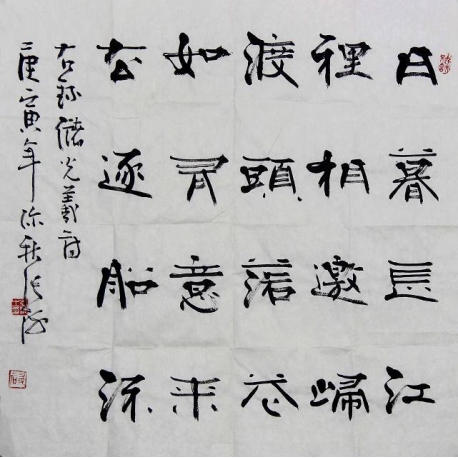 日暮長江
裡相邀歸
渡頭落花
如有意來
去逐船流
右錄儲光羲詩
庚寅年深秋